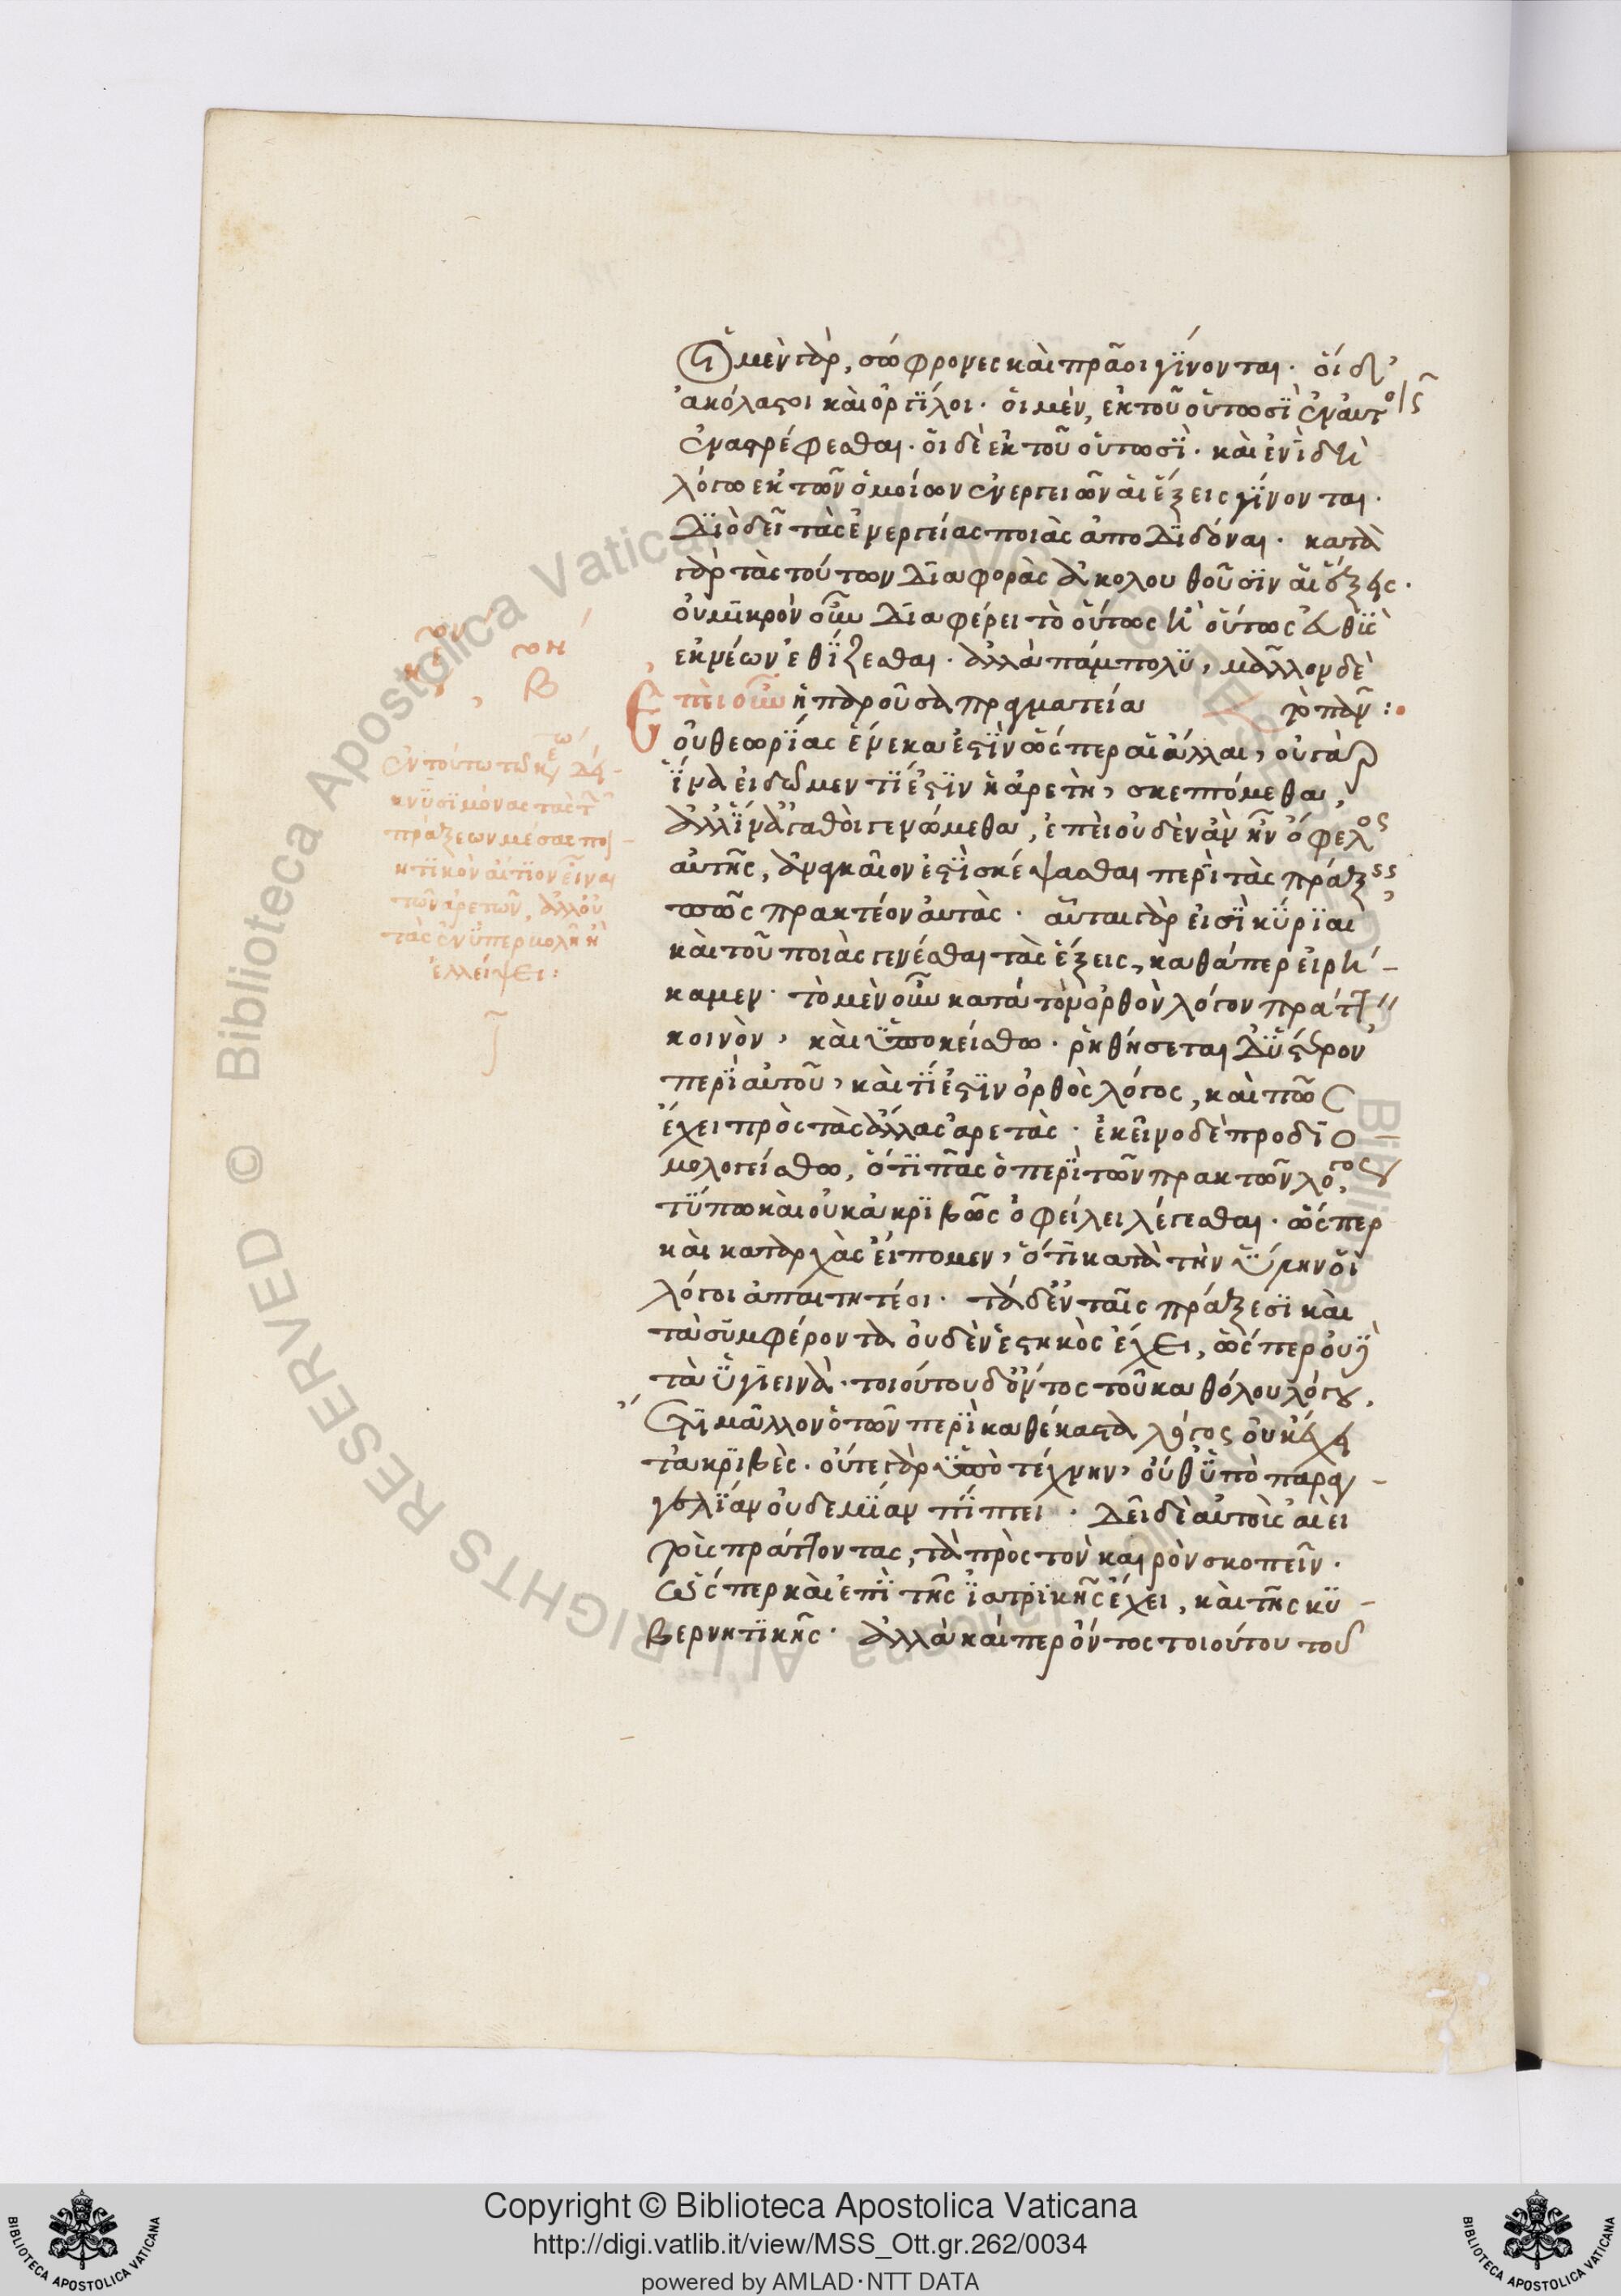 Οἱ μὲν γὰρ, σώφρονες καὶ πρᾶοι γίνονται· οἱ δ'
ἀκόλαστοι καὶ ὀργίλοι· οἱ μὲν, ἐκ τοῦ οὑτωσὶ ἐν αὐτοῖς
ἀναστρέφεσθαι· οἱ δὲ ἐκ τοῦ οὑτωσί· καὶ ἑνὶ δὴ
λόγω ἐκ τῶν ὁμοίων ἐνεργειῶν αἱ ἕξεις γίνονται·
Διὸ δεῖ τὰς ἐνεργείας ποιὰς ἀποδιδόναι· κατὰ
γὰρ τὰς τούτων διαφορὰς ἀκολουθοῦσιν αἱ ἕξεις·
οὐ μικρὸν οὖν διαφέρει τὸ οὕτως ἢ οὕτως εὐθὺς
ἐκ νέων ἐθίζεσθαι· ἀλλὰ πάμπολυ, μᾶλλον δὲ
τὸ πᾶν:
Ἐπεὶ οὖν ἡ παροῦσα πραγματεία
οὐ θεωρίας ἕνεκα ἐστὶν ὥσπερ αἱ ἄλλαι, οὐ γὰρ
ἵνα εἰδῶμεν τί ἐστιν ἡ ἀρετὴ, σκεπτόμεθα,
ἀλλ' ἵν' ἀγαθοὶ γενώμεθα, ἐπεὶ οὐδὲν ἂν ἦν ὄφελος
αὐτῆς, ἀναγκαῖον ἐστὶ σκέψασθαι περὶ τὰς πράξεις,
πῶς πρακτέον αὐτάς· αὗται γὰρ εἰσὶ κύριαι
καὶ τοῦ ποιὰς γενέσθαι τὰς ἕξεις, καθάπερ εἰρή-
καμεν· τὸ μὲν οὖν κατὰ τὸν ὀρθὸν λόγον πράττειν
κοινὸν, καὶ ὑποκείσθω· ῥηθήσεται δ' ὕστερον
περὶ αὐτοῦ, καὶ τί ἐστιν ὀρθὸς λόγος, καὶ πῶς
ἔχει πρὸς τὰς ἄλλας ἀρετάς· ἐκεῖνο δὲ προδιο-
μολογείσθω, ὅτι πᾶς ὁ περὶ τῶν πρακτῶν λόγος,
τύπω καὶ οὐκ ἀκριβῶς ὀφείλει λέγεσθαι· ὥσπερ
καὶ κατ' ἀρχὰς εἴπομεν, ὅτι κατὰ τὴν ὕλην οἱ
λόγοι ἀπαιτητέοι· τὰ δ' ἐν ταῖς πράξεσι καὶ
τὰ συμφέροντα οὐδὲν ἑστηκὸς ἔχει, ὥσπερ οὐδὲ
τὰ ὑγιεινά· τοιούτου δ' ὄντος τοῦ καθόλου λόγου,
ἔτι μᾶλλον ὁ τῶν περὶ καθέκαστα λόγος οὐκ ἔχει
τἀκριβές· οὔτε γὰρ ὑπὸ τέχνην, οὔθ' ὑπὸ παραγ-
γελίαν οὐδεμίαν πίπτει· Δεῖ δὲ αὐτοὺς αἰεὶ
τοὺς πράττοντας, τὰ πρὸς τὸν καιρὸν σκοπεῖν·
ὥσπερ καὶ ἐπὶ τῆς ἰατρικῆς ἔχει, καὶ τῆς κυ-
βερνητικῆς· ἀλλὰ καίπερ ὄντος τοιούτου τοῦ
β
Ἐν τούτω τῶ κεφαλαίω δεί-
κνυσι μόνας τὰς τῶν
πράξεων μέσας ποι-
ητικὸν αἴτιον εἶναι
τῶν ἀρετῶν, ἀλλ' οὐ
τὰς ἐν ὑπερβολῆ ἢ
ἐλλείψει:
Copyright © Biblioteca Apostolica Vaticana
http://digi.vatlib.it/view/MSS_Ott.gr.262/0034
powered by AMLAD·NTT DATA
BIBLIOTECA APOSTOLICA VATICANA
BIBLIOTECA APOSTOLICA VATICANA